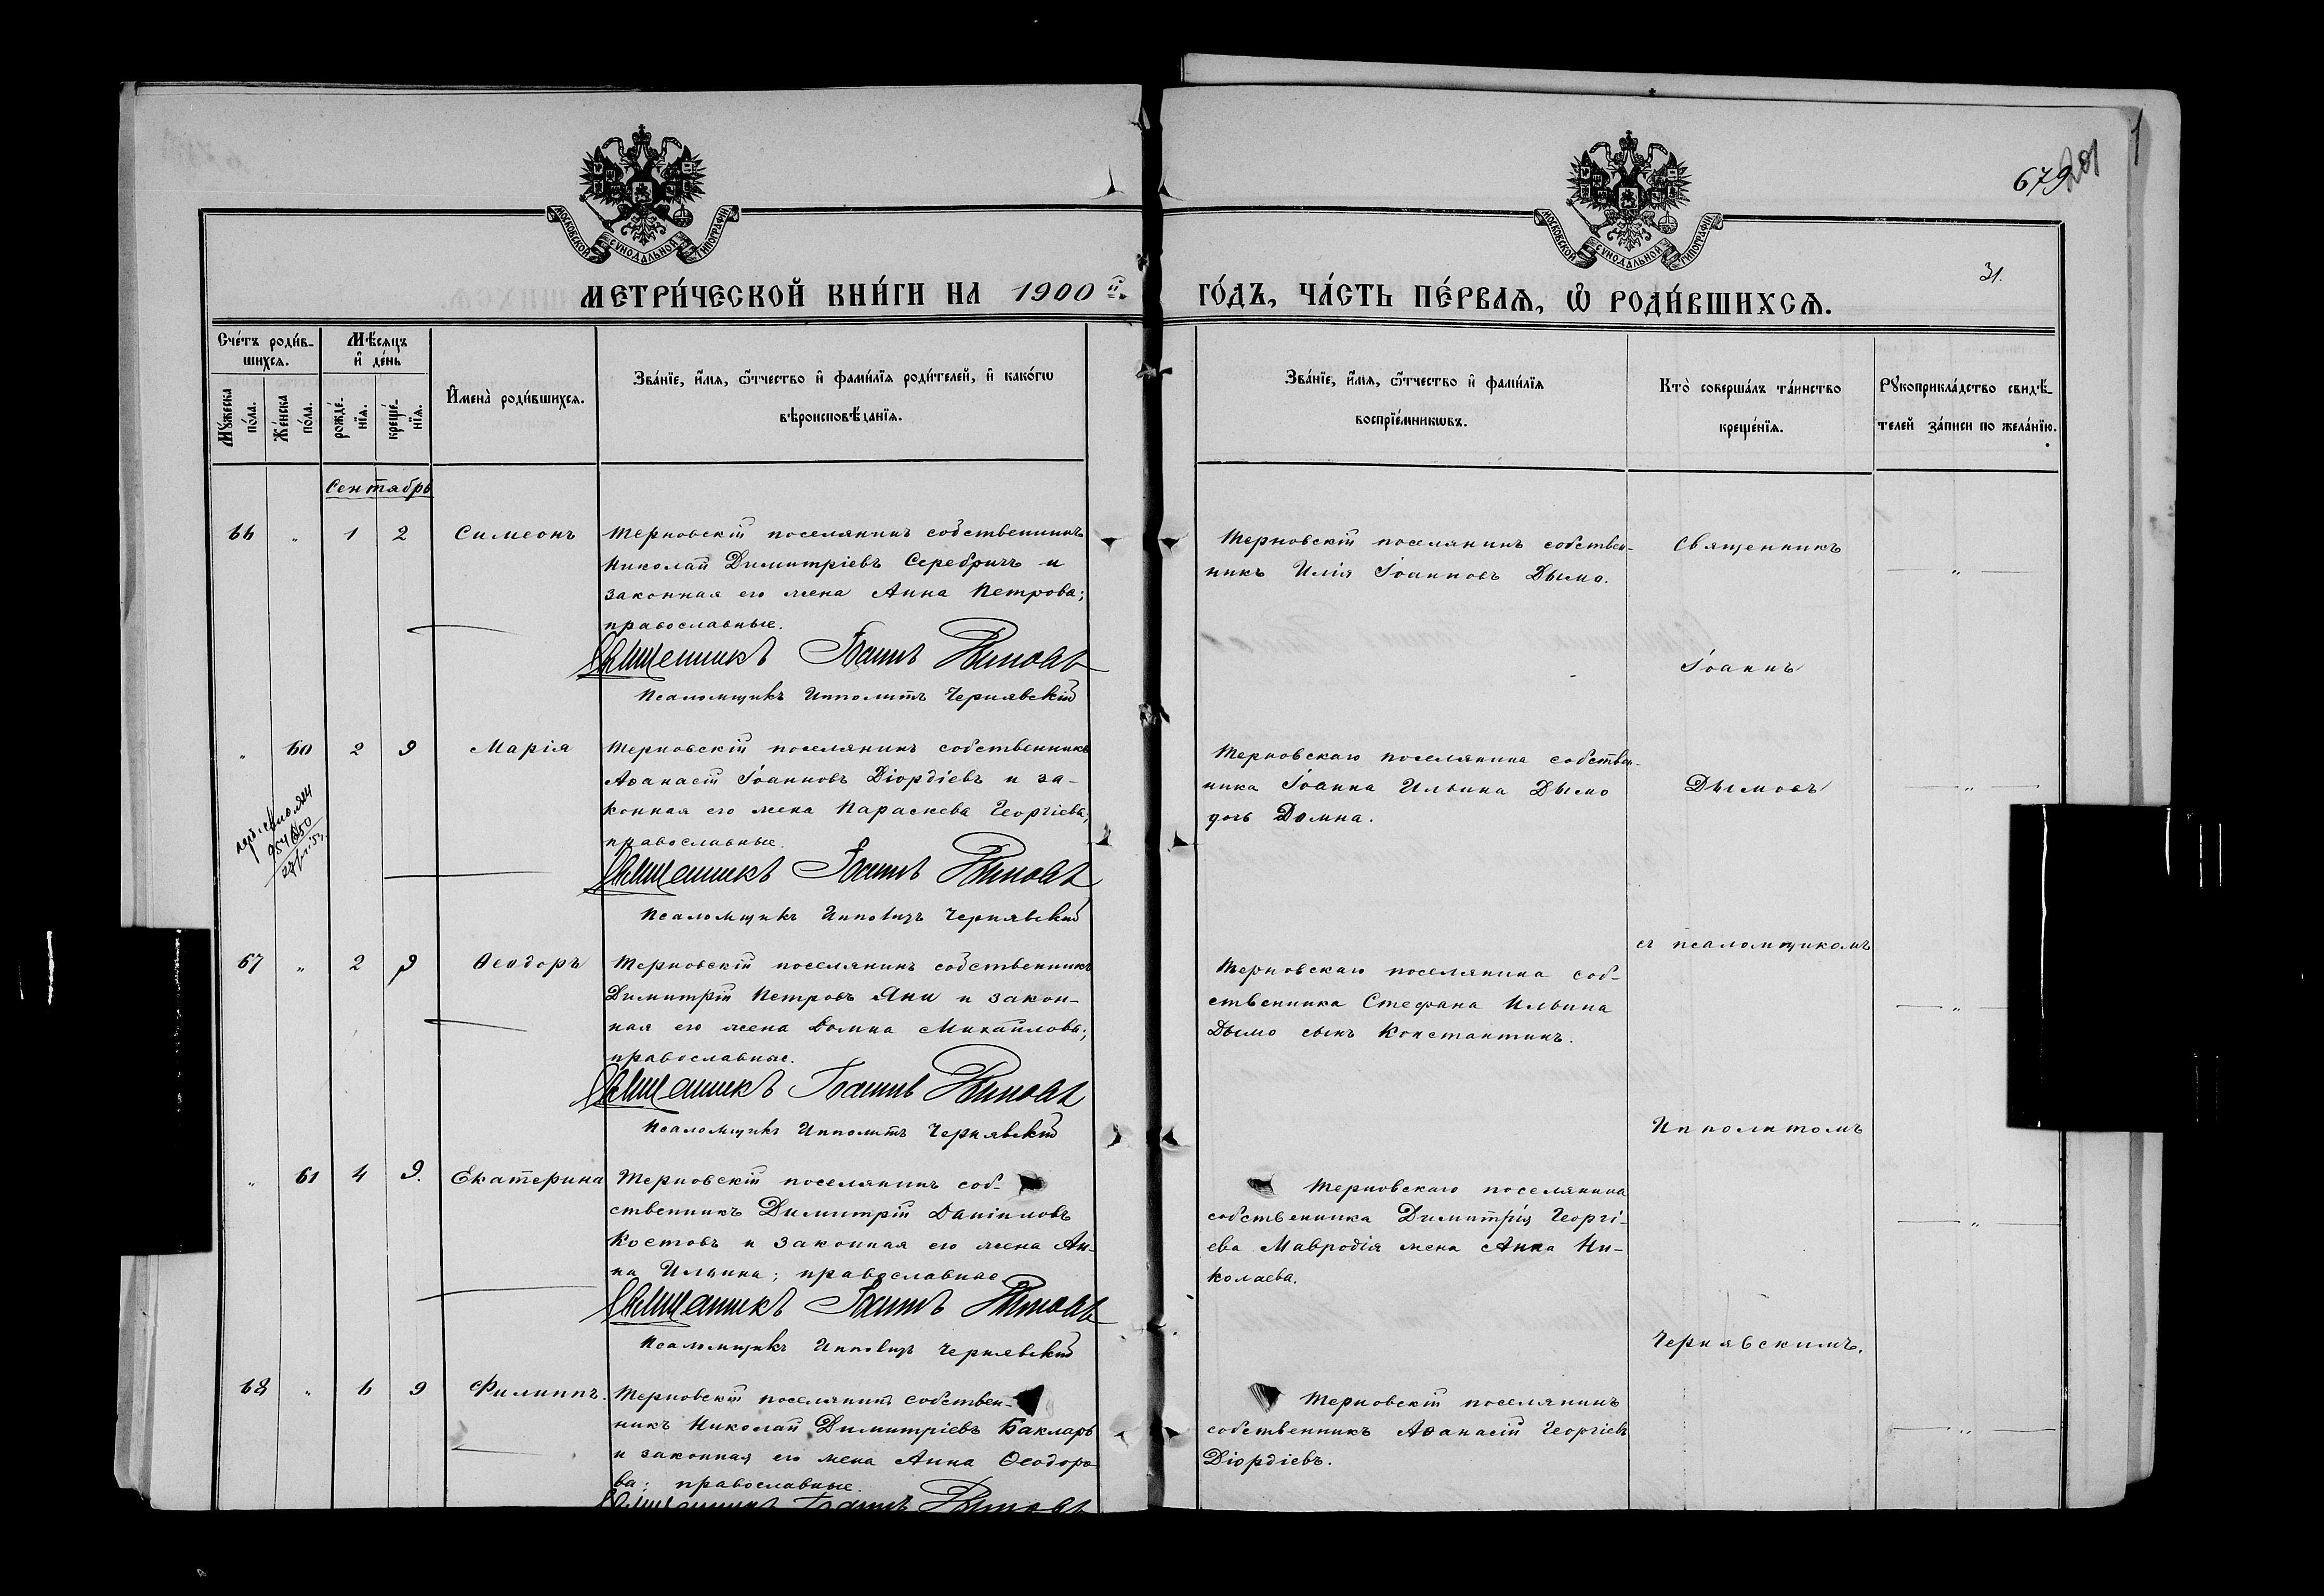 679
201
31.
МОСКОВСКОЙ СѴНОДАЛЬНОЙ ТИПОГРАФІИ
МОСКОВСКОЙ СѴНОДАЛЬНОЙ ТИПОГРАФІИ
МЕТРИ́ЧЕСКОЙ КНИ́ГИ НА 1900 й.
ГО́ДЪ, ЧА́СТЬ ПЕ́РВАѦ, Ѡ҆ РОДИ́ВШИХСѦ.
Сче́тъ роди́в-
шихсѧ.
Мꙋ́жеска по́ла.
Же́нска по́ла.
Мѣ́сѧцъ
и҆ де́нь
рожде́-
нїѧ.
креще́-
нїѧ.
И҆мена̀ роди́вшихсѧ.
Зва́нїе, и҆́мѧ, ѻ҆́тчество и҆ фами́лїѧ роди́телей, и҆ како́гѡ
вѣроисповѣ́данїѧ.
Зва́нїе, и҆́мѧ, ѻ҆́тчество и҆ фами́лїѧ
воспрїе́мникѡвъ.
Кто̀ соверша́лъ та́инство
креще́нїѧ.
Рꙋкоприкла́дство свидѣ́-
телей за́писи по жела́нїю.
Сентябрь
66 " 1 2 Симеонъ
Терновскій поселянинъ собственникъ
Николай Димитріевъ Серебричъ и
законная его жена Анна Петрова;
православные.
Священникъ Іоаннъ Дымовъ
Псаломщикъ Ипполитъ Чернявскій
Терновскій поселянинъ собствен-
никъ Илія Іоанновъ Дымо.
Священникъ
Іоаннъ
" 60 2 9 Марія
Терновскій поселянинъ собственникъ
Аѳанасій Іоанновъ Діордіевъ и за-
конная его жена Параскева Георгіева,
православные.
Священникъ Іоаннъ Дымовъ
Псаломщикъ Ипполитъ Чернявскій
Терновскаго поселянина собствен-
ника Іоанна Ильина Дымо
дочь Домна.
Дымовъ
67 " 2 9 Ѳеодоръ
Терновскій поселянинъ собственникъ
Димитрій Петровъ Яни и закон-
ная его жена Домна Михайлова;
православные.
Священникъ Іоаннъ Дымовъ
Псаломщикъ Ипполитъ Чернявскій
Терновскаго поселянина соб-
ственника Стефана Ильина
Дымо сынъ Константинъ.
съ псаломщикомъ
Ипполитомъ
" 61 4 9. Екатерина
Терновскій поселянинъ соб-
ственникъ Димитрій Даніиловъ
Костовъ и законная его жена Ан-
на Ильина; православные
Священникъ Іоаннъ Дымовъ
Псаломщикъ Ипполитъ Чернявскій
Терновскаго поселянина
собственника Димитрія Георгі-
ева Мавродія жена Анна Ни-
колаева.
Чернявскимъ.
68 " 6 9 Филиппъ.
Терновскій поселянинъ собствен-
никъ Николай Димитріевъ Бакларъ
и законная его жена Анна Ѳеодоро-
ва; православные.
Священникъ Іоаннъ Дымовъ
Терновскій поселянинъ
собственникъ Аѳанасій Георгіевъ
Діордіевъ.